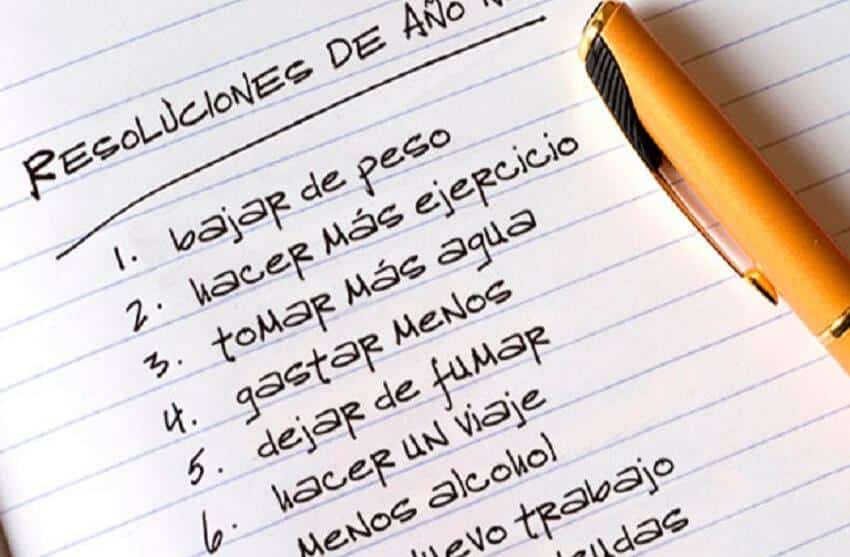 RESOLUCIONES DE AÑO
1. bajar de peso
2. hacer más ejercicio
3. tomar más agua
4. gastar menos
5. dejar de fumar
6. hacer un viaje
menos alcohol
trabajo